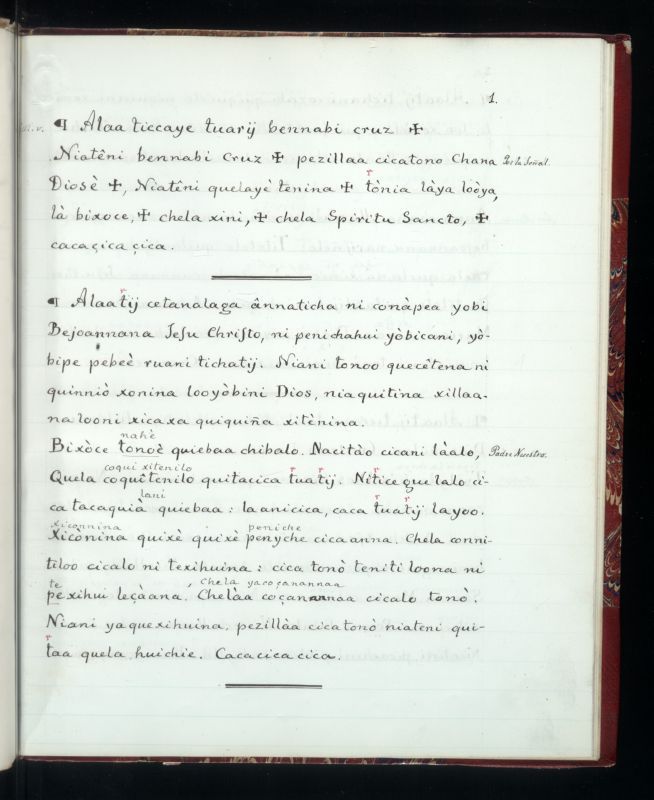 1.
¶ Alaa ticcaye tuarij bennabi cruz ✠
Niatêni bennabi Cruz ✠ pezillaa cicatono Chana
Por la Señal.
r
Diosè ✠, Niatêni quelayè tenina ✠ tònia làya loòya,
là bixoce, ✠ chela xini, ✠ chela Spiritu Sancto, ✠
cacaçica çica.
r
¶ Alaatij cetanalaga ânnaticha ni conàpea yobi
Bejoannana Jesu Christo, ni penichahui yòbicani, yò-
bipe pebeè ruani tichatij. Niani tonoo quecêtena ni
quinniò xonina looyòbini Dios, niaquitina xillaa-
na looni xicaxa quiquiña xitènina.
nahe
Bixòce tonoè quiebaa chibalo. Nacitào cicani làalo,
Padre Nuestro.
coqui xitenilo r r r
Quela coquîtenilo quitacica tuatij. Nitice gue lalo ci-
lani r r
ca tacaquià quiebaa: laanicica, caca tuatij layoo.
xiconnina peniche
Xiconina quixè quixè penyche cicaanna. Chela conni-
tiloo cicalo ni texihuina: cica tonò teniti loona ni
te chela yacoçanannaa
pexihui leçàana. Chelàa coçannnaa cicalo tonò.
Niani yaquexihuina. pezillàa cicatonò niateni qui-
r
taa quela huichie. Cacacicacica.